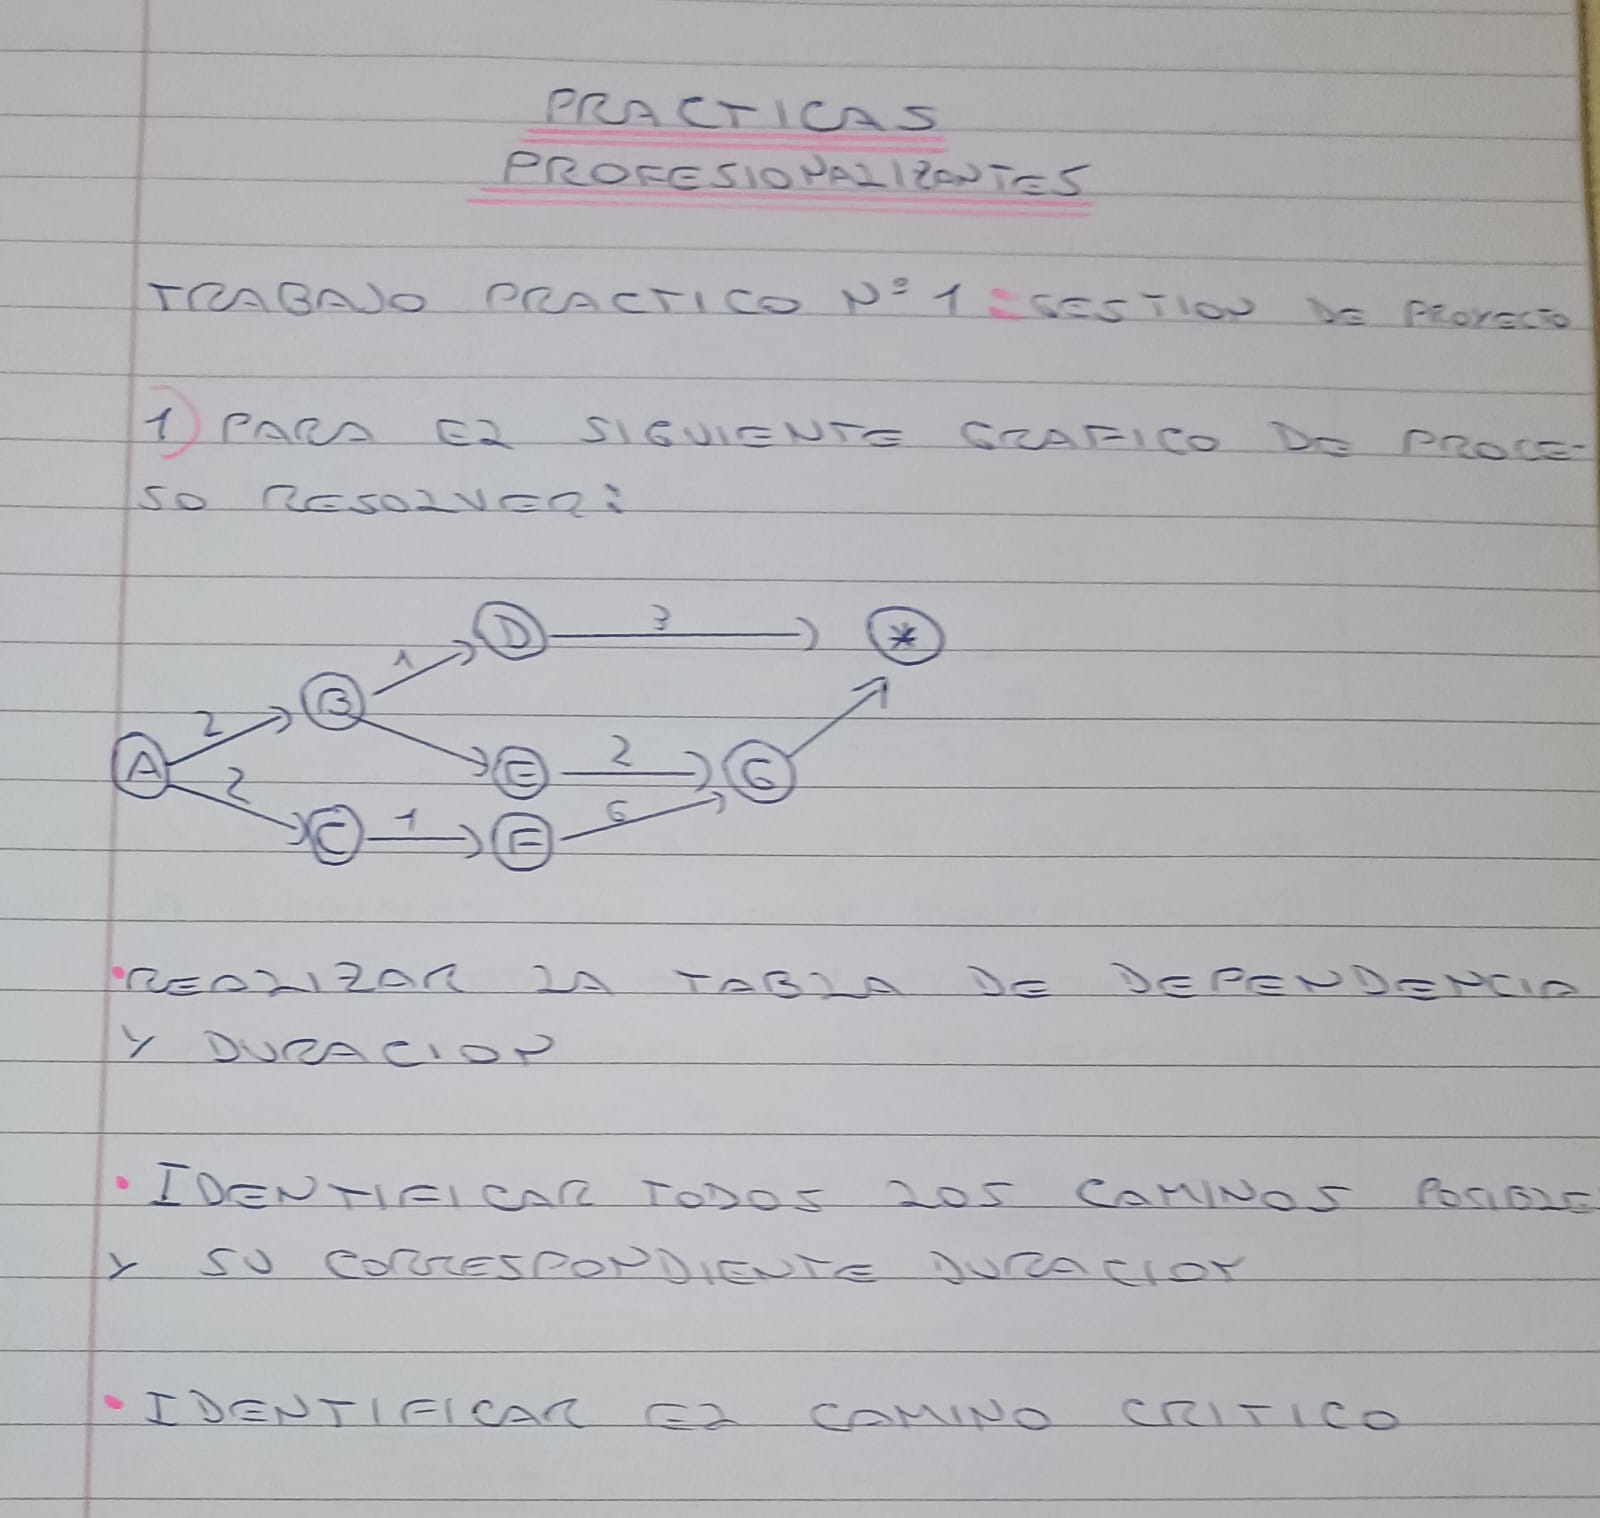 PRACTICAS
PROFESIONALIZANTES
TRABAJO PRACTICO Nº 1: GESTION DE PROYECTO
1) PARA EL SIGUIENTE GRAFICO DE PROCE-
SO RESOLVER:
D 3 *
1
B
2
A
E 2 G
2
C 1 F 6
• REALIZAR LA TABLA DE DEPENDENCIA
Y DURACION
• IDENTIFICAR TODOS LOS CAMINOS POSIBLE
Y SU CORRESPONDIENTE DURACION
• IDENTIFICAR EL CAMINO CRITICO